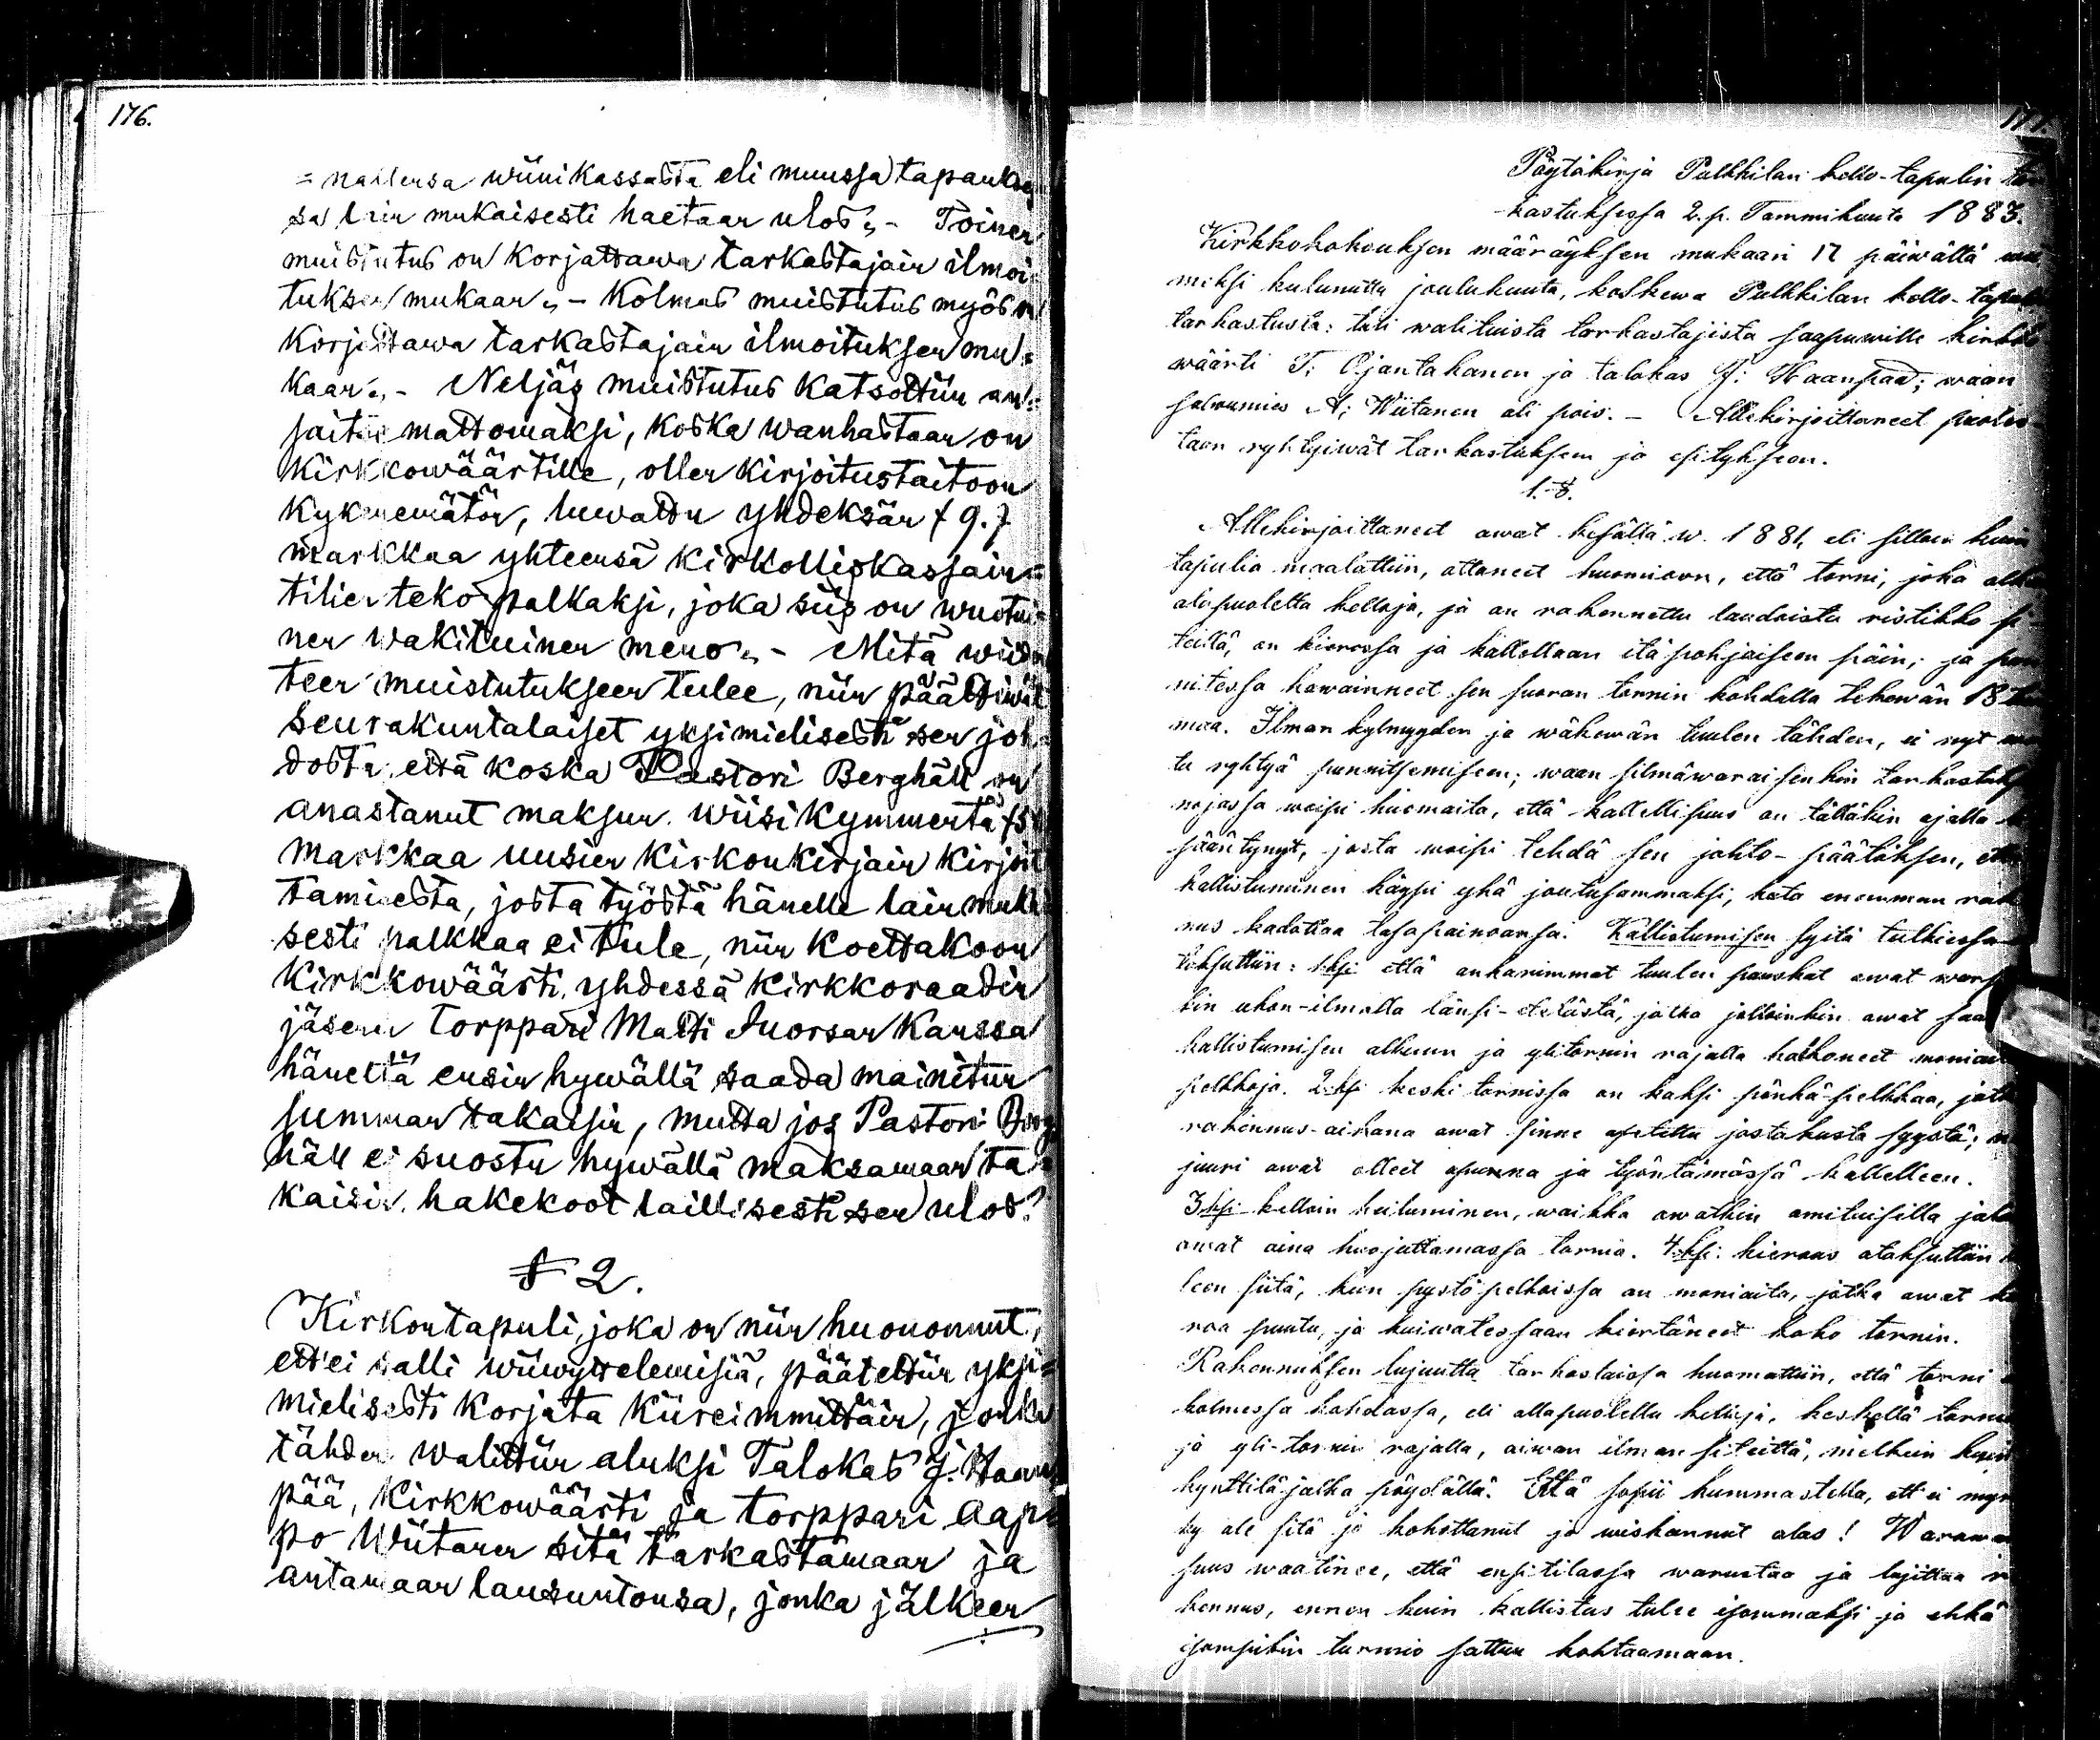 176.
= nallensa wiinikassasta eli muussa tapaukses
sa lain mukaisesti haetaan ulos„ - Toinen
muistutus on korjattawa tarkastajain ilmoi
tuksen mukaan„ - Kolmas muistutus myös on
korjattawa tarkastajain ilmoituksen mu=
kaan„ - Neljäs muistutus katsottiin an=
saitsemattomaksi, koska wanhastaan on
kirkkowäärtille, ollen kirjoitustaitoon
kykenemätön, luwattu yhdeksän (9.)
markkaa yhteensä kirkolliskassain=
tilien teko palkaksi, joka siis on wuotu=
nen wakituinen meno„ - Mitä wiiden
teen muistutukseen tulee, niin päättiwät
seurakuntalaiset yksimielisesti sen joh
dosta: että koska Pastori Berghäll on
anastanut maksun wiisikymmentä (50
markkaa uusien kirkonkirjain kirjoit
tamisesta, josta työstä hänelle lain muka
sesti palkkaa ei tule, niin koettakoon
Kirkkowäärti yhdessä kirkkoraadin
jäsenen torppari Matti Juorsan kanssa
häneltä ensin hywällä saada mainitun
summan takaisin, mutta jos Pastori Berg
häll ei suostu hywällä maksamaan ta=
kaisin, hakekoot laillisesti sen ulos.
§ 2.
Kirkontapuli, joka on niin huonannut,
ett'ei salli wiiwyttelemisiä, päätettiin yksi=
mielisesti korjata kiireimmittäin, jonka
tähden walittiin aluksi Talokas J. Haan
pää, Kirkkowäärti ja torppari Aap
po Wiitanen sitä tarkastamaan ja
antamaan lausuntonsa, jonka jälkeen
Pöytäkirja Pulkkilan kello-tapulin tar
kastuksessa 2. p. Tammikuuta 1883.
Kirkkokokouksen määräyksen mukaan 17 päiwältä wii
meksi kulunutta joulukuuta, koskewa Pulkkilan kello-tapulin
tarkastusta: tuli walituista tarkastajista saapuwille kirkko
wäärti T: Ojantakanen ja talokas J: Haanpää; waan
salwumies A: Wiitanen oli pois. - Allekirjoittaneet puoles
taan ryhtyiwät tarkastuksen ja esitykseen.
1. §.
Allekirjoittaneet owat kesällä w. 1881, eli silloin kuin
tapulia maalattiin, ottaneet huomioon, että torni, joka alkaa
alapuolelta kelloja, ja on rakennettu laudoista ristikko si-
teillä, on kierossa ja kallellaan itä pohjaiseen päin; ja pun
nitessa hawainneet sen suoran tornin kohdalla tekewän 18 tuu
maa. Ilman kylmyyden ja wäkewän tuulen tähden, ei nyt
tu ryhtyä punnitsemiseen; waan silmäwaraisenkin tarkastuksen
nojassa woipi huomaita, että kallellisuus on tälläkin ajalla
sääntynyt, josta woipi tehdä sen johto-päätöksen, että
kallistuminen käypi yhä joutusammaksi, kuta enemmän raken
nus kadottaa tasapainoansa. Kallistumisen syitä tutkiessa
toksuttiin: 1ksi että ankarimmat tuulen puuskat owat wars
kin ukon-ilmalla länsi-etelästä, jotka jolloinkin owat saa
kallistumisen alkuun ja ylitornin rajalla katkoneet moniai
pelkkoja. 2ksi keski tornissa on kaksi pönkä-pelkkaa, jotk
rakennus-aikana owat sinne asetettu jostakusta syystä; n
juuri owat olleet apunna ja työntämässä kallelleen.
3ksi kelloin heiluminen, waikka owatkin omituisilla jal
owat aina huojuttamassa tornia. 4ksi: kieraus otaksuttiin
leen siitä, kun pystö pelkoissa on moniaita, jotka owat
raa puuta, ja kuiwatessaan kiertäneet koko tornin.
Rakennuksen lujuutta tarkastaissa huomattiin, että torni
kolmessa kohdassa, eli allapuolella kelloja, keskellä tornia
ja yli-tornin rajalla, aiwan ilman siteittä, melkein kuin
kynttiläjalka pöydällä. Että sopii kummastella, ett ei myr
ky ole sitä jo kohottanut ja wiskannut alas! Warawai
suus waatinee, että ensi tilassa warustaa ja lujittaa
kennus, ennen kuin kallistus tulee isommaksi ja ehkä
isompikin turmio sattuu kohtaamaan.